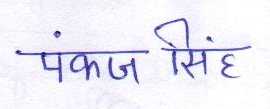 पंकज सिंह